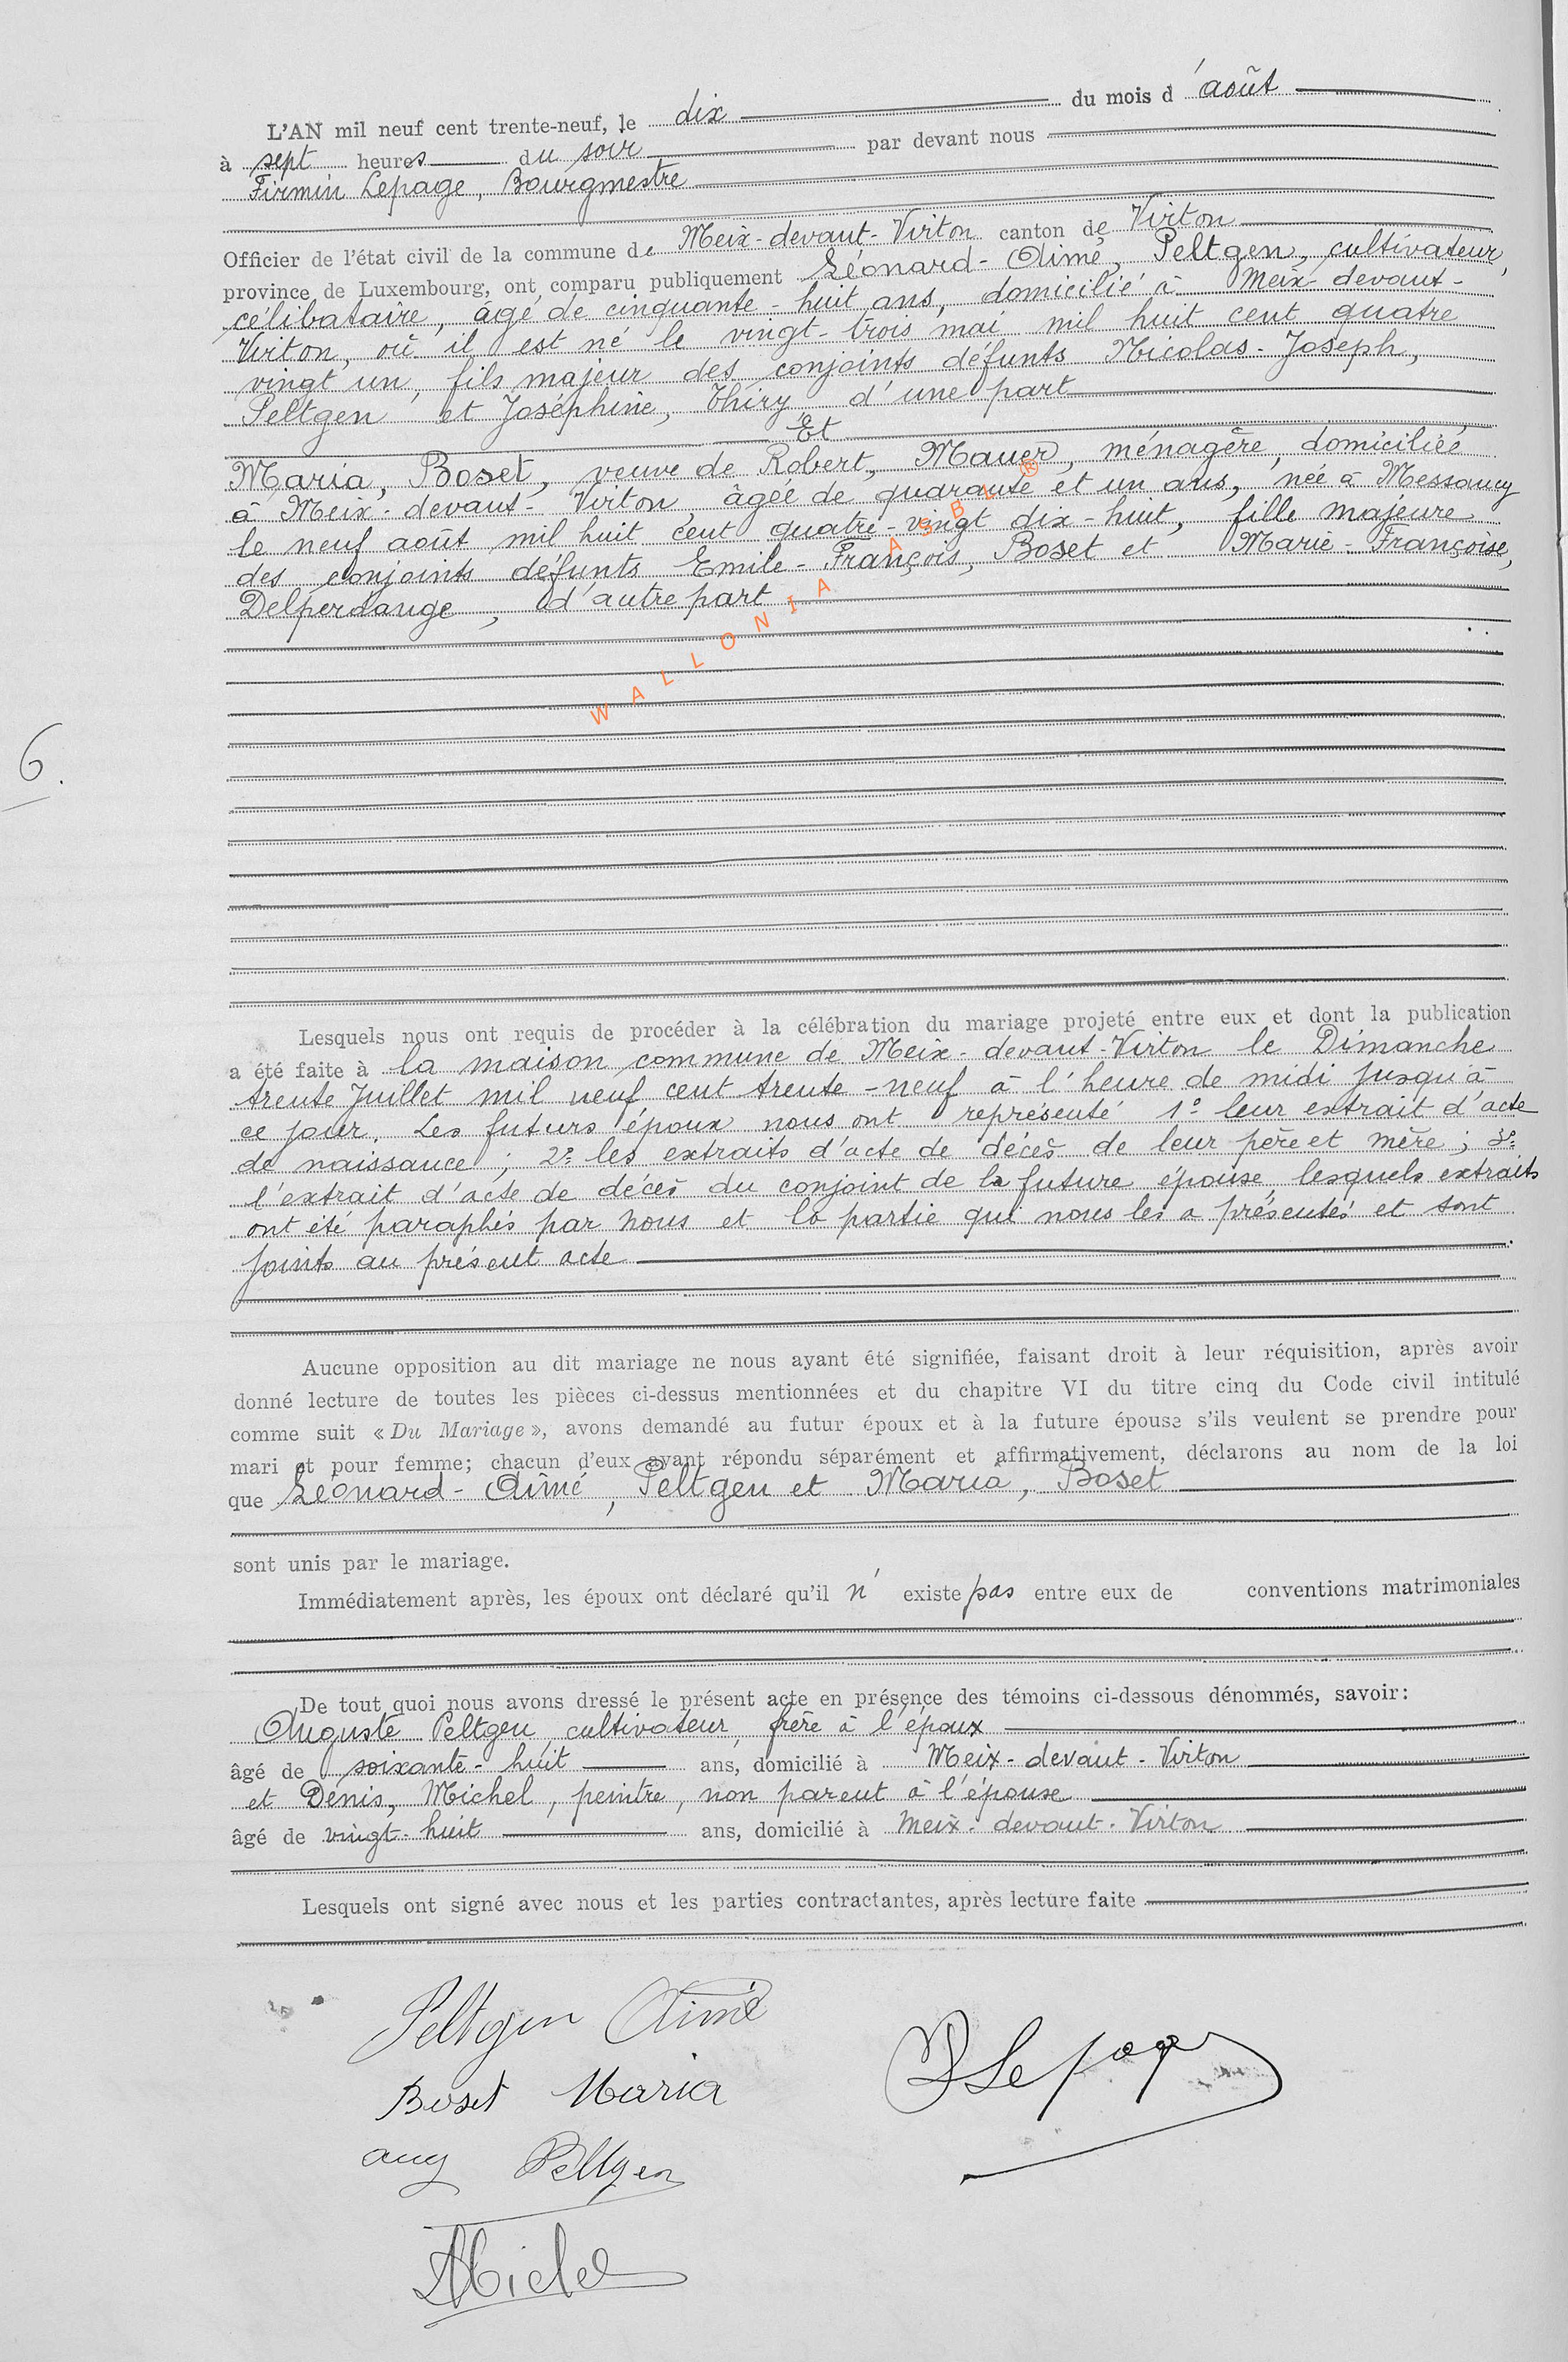 L'AN mil neuf cent trente-neuf, le dix du mois d'août
à sept heures du soir par devant nous
Firmin Lepage, Bourgmestre
Officier de l'état civil de la commune de Meix-devant-Virton canton de Virton
province de Luxembourg, ont comparu publiquement Léonard-Aimé, Peltgen, cultivateur,
célibataire, âgé de cinquante-huit ans, domicilié à Meix-devant-
Virton, où il est né le vingt-trois mai mil huit cent quatre
vingt un, fils majeur des conjoints défunts Nicolas-Joseph,
Peltgen et Joséphine, Thiry d'une part
Et
Maria, Boset, veuve de Robert, Mauer, ménagère, domiciliée
à Meix-devant-Virton, âgée de quarante et un ans, née à Messancy
le neuf août mil huit cent quatre-vingt dix-huit, fille majeure
des conjoints défunts Emile-François, Boset et Marie-Françoise,
Delperdange, d'autre part
WALLONIA ASBL ®
6.
Lesquels nous ont requis de procéder à la célébration du mariage projeté entre eux et dont la publication
a été faite à la maison commune de Meix-devant-Virton le Dimanche
trente Juillet mil neuf cent trente-neuf à l'heure de midi jusqu'à
ce jour. Les futurs époux nous ont représenté 1º leur extrait d'acte
de naissance; 2º les extraits d'acte de décès de leur père et mère; 3º
l'extrait d'acte de décès du conjoint de la future épouse, lesquels extraits
ont été paraphés par nous et la partie qui nous les a présentés et sont
joints au présent acte
Aucune opposition au dit mariage ne nous ayant été signifiée, faisant droit à leur réquisition, après avoir
donné lecture de toutes les pièces ci-dessus mentionnées et du chapitre VI du titre cinq du Code civil intitulé
comme suit « Du Mariage », avons demandé au futur époux et à la future épouse s'ils veulent se prendre pour
mari et pour femme; chacun d'eux ayant répondu séparément et affirmativement, déclarons au nom de la loi
que Léonard-Aimé, Peltgen et Maria, Boset
sont unis par le mariage.
Immédiatement après, les époux ont déclaré qu'il n'existe pas entre eux de conventions matrimoniales
De tout quoi nous avons dressé le présent acte en présence des témoins ci-dessous dénommés, savoir:
Auguste Peltgen, cultivateur, frère à l'époux
âgé de soixante-huit ans, domicilié à Meix-devant-Virton
et Denis, Michel, peintre, non parent à l'épouse
âgé de vingt-huit ans, domicilié à Meix-devant-Virton
Lesquels ont signé avec nous et les parties contractantes, après lecture faite
Peltgen Aimé
F Lepage
Boset Maria
Aug Peltgen
DMichel